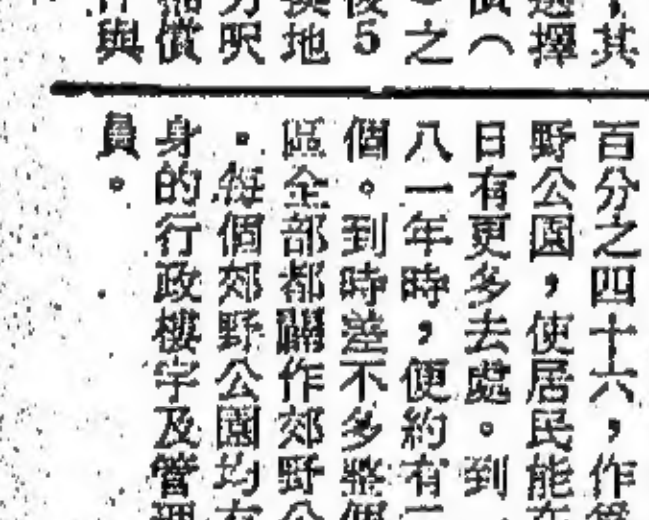 其
選擇
（
之
後5
換地
方呎
償
與
百分之四十六，作
野公園，使居民能在
日有更多去處。到一
八一年時，便約有二
個。到時差不多整個
區全部都闢作郊野公
。每個郊野公園均有
身的行政樓宇及管理
員。